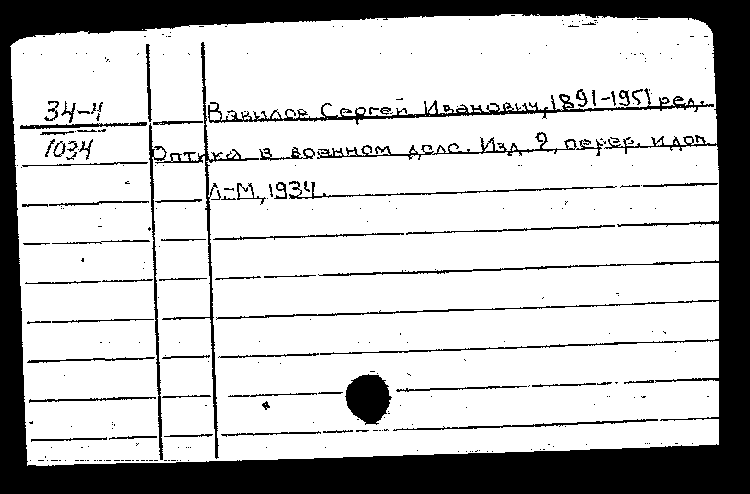 34-4
Вавилов Сергей Иванович, 1891-1951 ред.
1034
Оптика в военном деле. Изд. 2, перер. и доп.
Л.-М, 1934.